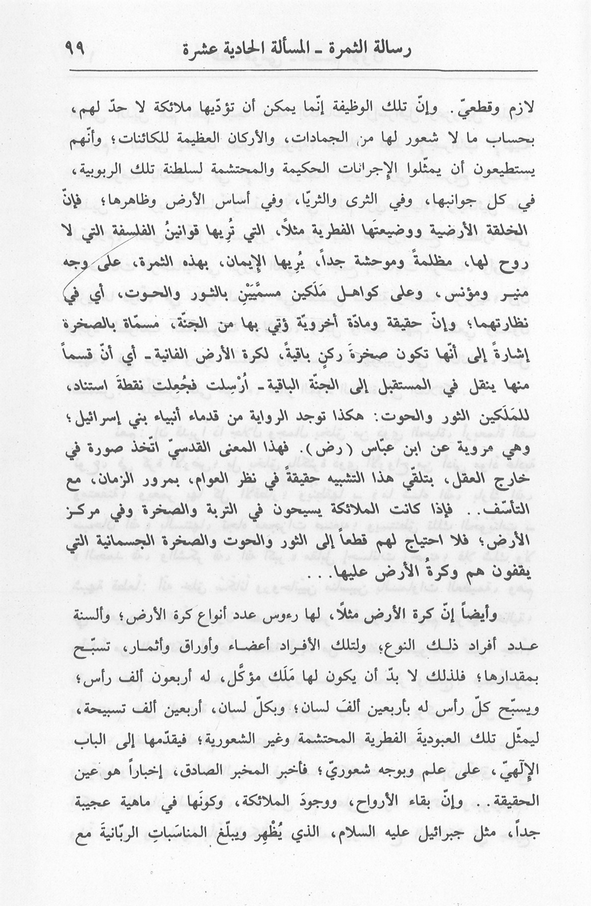 رسالة الثمرة ـ المسألة الحادية عشرة ٩٩
لازم وقطعيّ. وإنّ تلك الوظيفة إنّما يمكن أن تؤدّيها ملائكة لا حدّ لهم،
بحساب ما لا شعور لها من الجمادات، والأركان العظيمة للكائنات؛ وأنّهم
يستطيعون أن يمثّلوا الإجرانات الحكيمة والمحتشمة لسلطنة تلك الربوبية،
في كل جوانبها، وفي الثرى والثريّا، وفي أساس الأرض وظاهرها؛ فإنّ
الخلقة الأرضية ووضيعتَها الفطرية مثلًا، التي تُرِيها قوانينُ الفلسفة التي لا
روح لها، مظلمةً وموحشة جداً، يُرِيها الإيمان، بهذه الثمرة، على وجه
منير ومؤنس، وعلى كواهل مَلَكين مسمَّيَيْنِ بالثور والحوت، أي في
نظارتهما؛ وإنّ حقيقة ومادّة أخرويّة ؤتي بها من الجنّة، مسمّاة بالصخرة
إشارةً إلى أنّها تكون صخرةَ ركنٍ باقيةً، لكرة الأرض الفانية ـ أي أنّ قسماً
منها ينقل في المستقبل إلى الجنّة الباقية ـ أُرْسِلت فجُعِلت نقطةَ استناد،
للمَلَكين الثور والحوت: هكذا توجد الرواية من قدماء أنبياء بني إسرائيل؛
وهي مروية عن ابن عبّاس (رض). فهذا المعنى القدسيّ اتّخذ صورة في
خارج العقل، بتلقّي هذا التشبيه حقيقةً في نظر العوام، بمرور الزمان، مع
التأسّف.. فإذا كانت الملائكة يسيحون في التربة والصخرة وفي مركز
الأرض؛ فلا احتياج لهم قطعاً إلى الثور والحوت والصخرة الجسمانية التي
يقفون هم وكرةُ الأرض عليها...
وأيضاً إنّ كرة الأرض مثلًا، لها رءوس عدد أنواع كرة الأرض؛ وألسنة
عدد أفراد ذلك النوع؛ ولتلك الأفراد أعضاء وأوراق وأثمار، تسبّح
بمقدارها؛ فلذلك لا بدّ أن يكون لها مَلَك مؤكَّل، له أربعون ألف رأس؛
ويسبّح كلّ رأس له بأربعين ألفَ لسان؛ وبكلّ لسان، أربعين ألف تسبيحة،
ليمثّل تلك العبوديةَ الفطرية المحتشمة وغير الشعورية؛ فيقدّمها إلى الباب
الإلٓهيّ، على علم وبوجه شعوريّ؛ فأخبر المخبر الصادق، إخباراً هو عين
الحقيقة.. وإنّ بقاء الأرواح، ووجودَ الملائكة، وكونَها في ماهية عجيبة
جداً، مثل جبرائيل عليه السلام، الذي يُظْهِر ويبلّغ المناسَباتِ الربّانيةَ مع